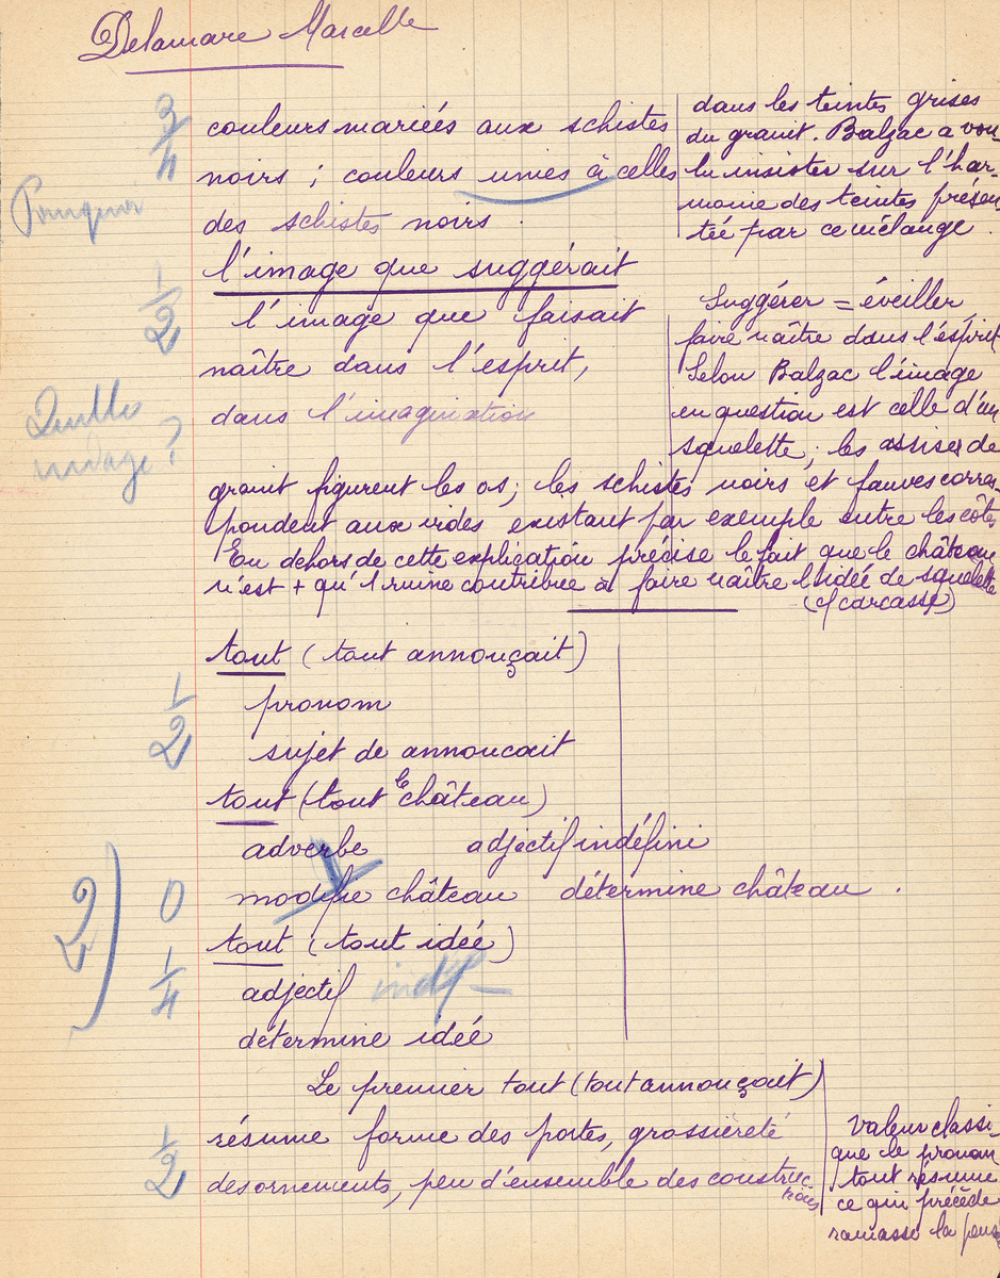 Delamare Marcelle
3/4
couleurs mariées aux schistes
noirs ; couleurs unies à celles
des schistes noirs.
Pourquoi
dans les teintes grises
du granit. Balzac a vou-
lu insister sur l'har-
monie des teintes présen
tée par ce mélange.
l'image que suggérait
1/2
l'image que faisait
naître dans l'esprit,
dans l'imagination
Quelle
image ?
Suggérer = éveiller,
faire naître dans l'esprit
Selon Balzac l'image
en question est celle d'un
squelette ; les assises de
granit figurent les os ; les schistes noirs et fauves corres-
pondent aux vides existant par exemple entre les côtes
En dehors de cette explication précise le fait que le château
n'est + qu'1 ruine contribue à faire naître l'idée de squelette
(cf carcasse)
tout (tout annonçait)
pronom
1/2
sujet de annoncait
tout (tout le château)
adverbe adjectif indéfini
modifie château détermine château .
0
2
tout (tout idée)
adjectif indéf
1/4
détermine idée
Le premier tout (tout annonçait)
résume forme des portes, grossièreté
des ornements, peu d'ensemble des construc-
tions
1/2
Valeur classi-
que le pronom
tout résume
ce qui précède
ramasse la pens